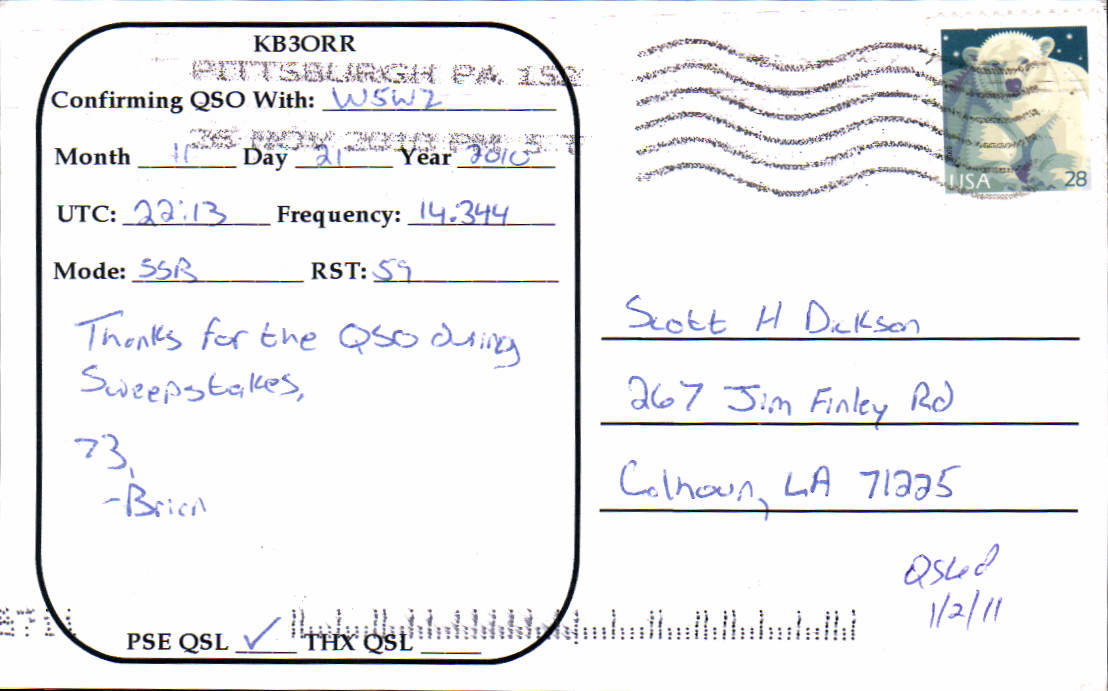 KB3ORR
PITTSBURGH PA 152
Confirming QSO With: W5WZ
Month 11 Day 21 Year 2010
UTC: 22:13 Frequency: 14.344
Mode: SSB RST: 59
Thanks for the QSO during
Sweepstakes,
73,
-Brian
PSE QSL ✓ THX QSL
USA 28
Scott H Dickson
267 Jim Finley Rd
Calhoun, LA 71225
QSLed
1/2/11